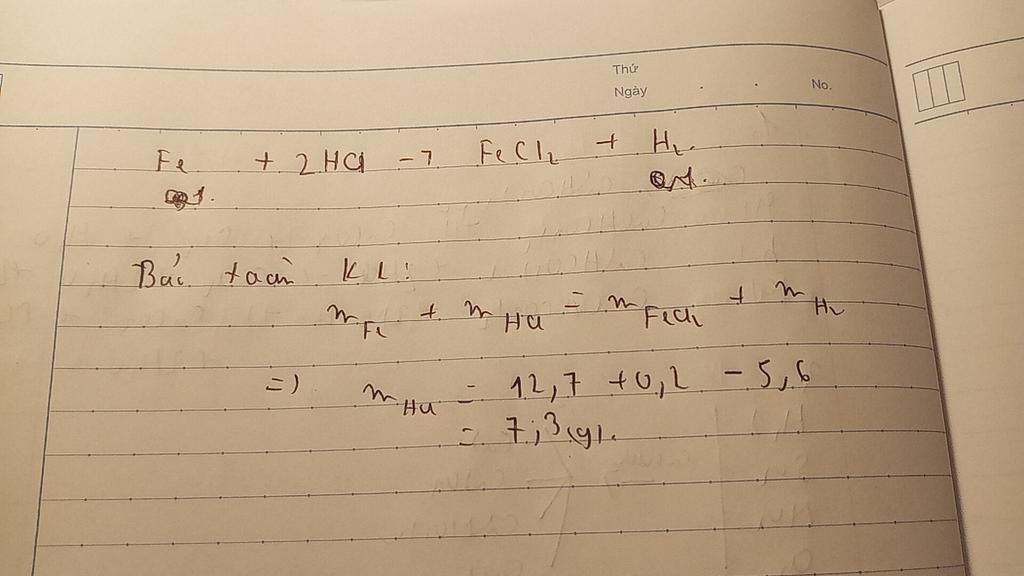 Thứ
Ngày . . No.
Fe + 2HCl → FeCl₂ + H₂.
Bảo toàn KL:
m Fe + m HCl = m FeCl₂ + m H₂
=> m HCl = 12,7 + 0,2 - 5,6
= 7,3 (g).